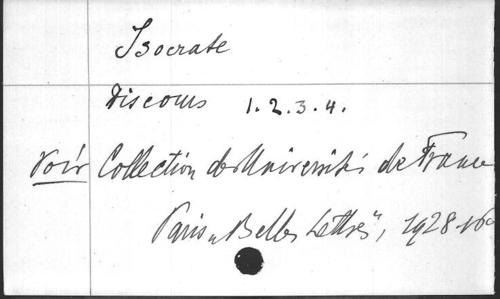 Isocrate
Discours 1.2.3.4.
Voir Collection des Universités de France
Paris „Belles Lettres", 1928-